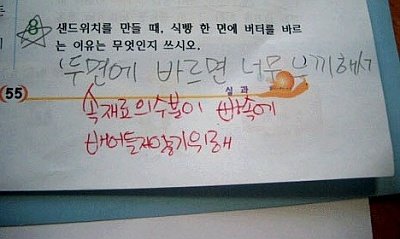 8 샌드위치를 만들 때, 식빵 한 면에 버터를 바르
는 이유는 무엇인지 쓰시오.
두면에 바르면 너무 느끼해서
55 실과
속재료의수분이 빵속에
배어들지않기위해